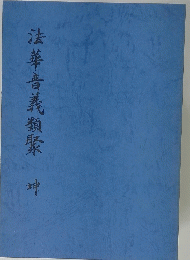 法華音義類聚 坤